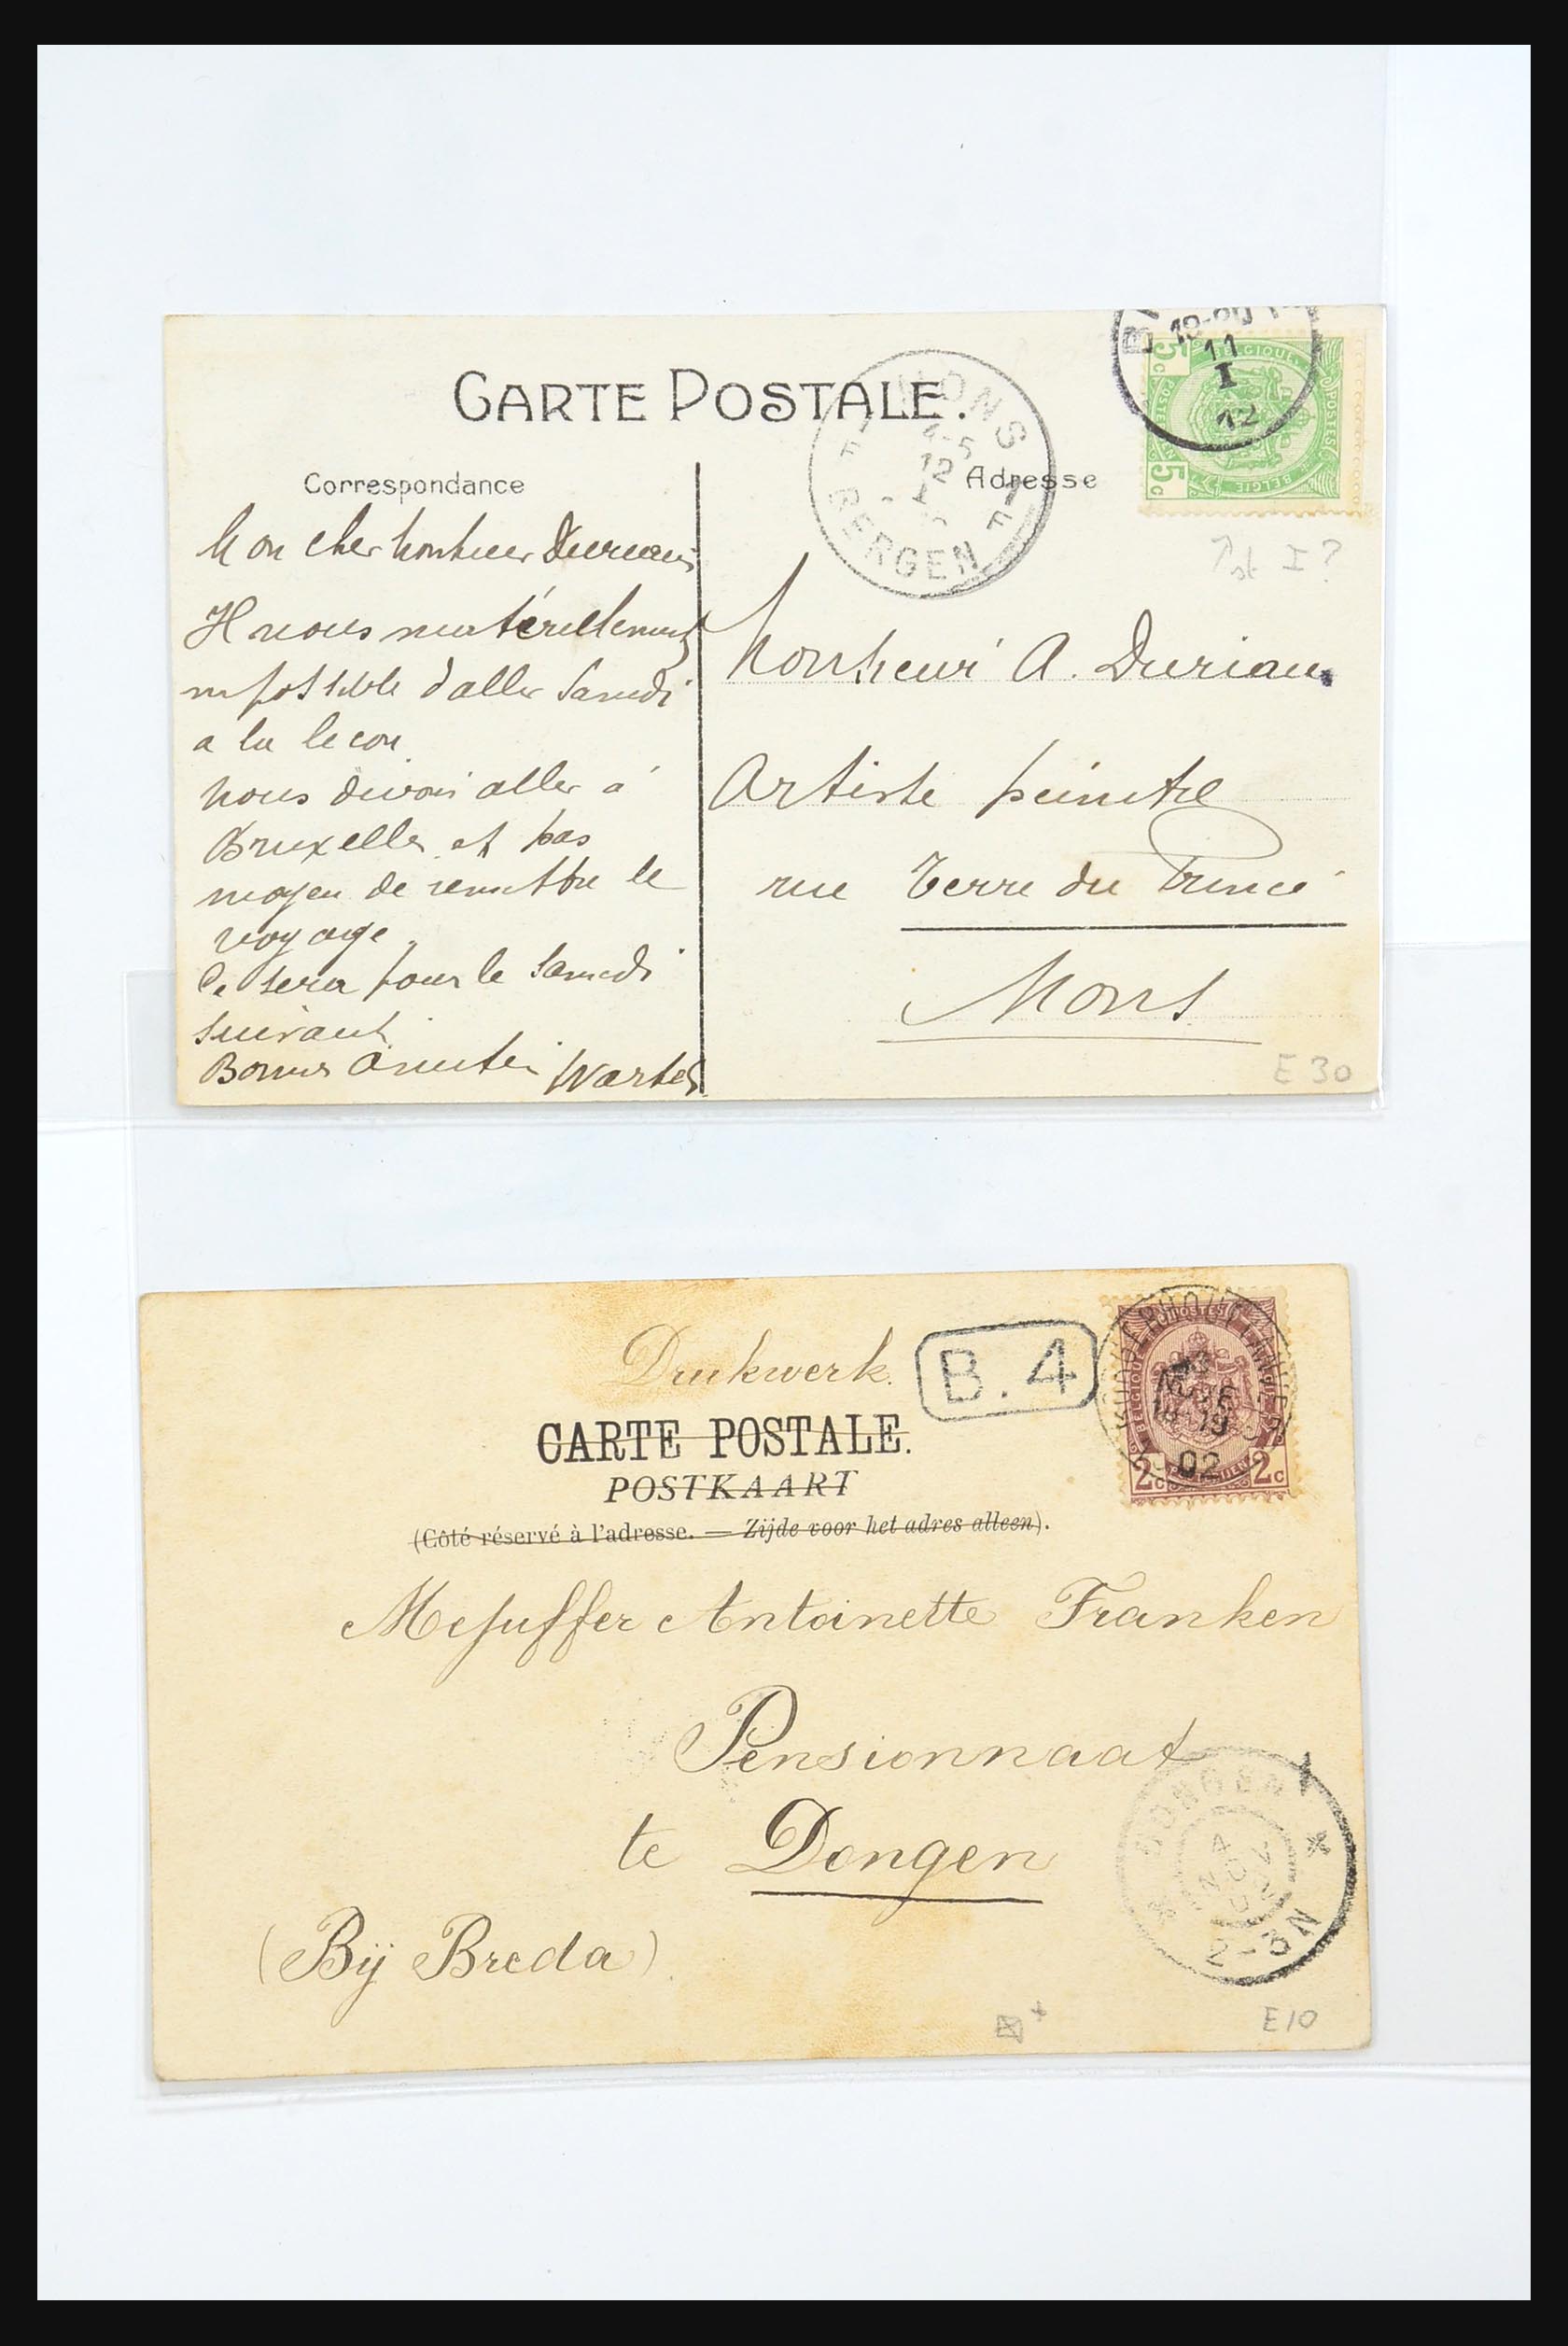 CARTE POSTALE.
Correspondance
Adresse
MONS
4-5
12
I
F F
BERGEN
10-20
11
I
12
5c
BELGIQUE
POSTES
BELGIE
5c
st I?
Mon cher Monsieur Duriau
Il nous matériellement
impossible d'aller Samedi
a la lecon
nous devons aller à
Bruxelles et pas
moyen de remettre le
voyage.
Ce sera pour le Samedi
suivant.
Bonnes Amitiés
Monsieur A. Duriau
Artiste peintre
rue Terre du Prince
Mons
E 30
Drukwerk.
B.4
CARTE POSTALE.
POSTKAART
(Côté réservé à l'adresse. — Zijde voor het adres alleen).
POSTES
BELGIQUE
2c 2c
02
Mejuffer Antoinette Franken
Pensionnaat
te Dongen
(Bij Breda)
DONGEN
4
NOV
02
2-3N
E10